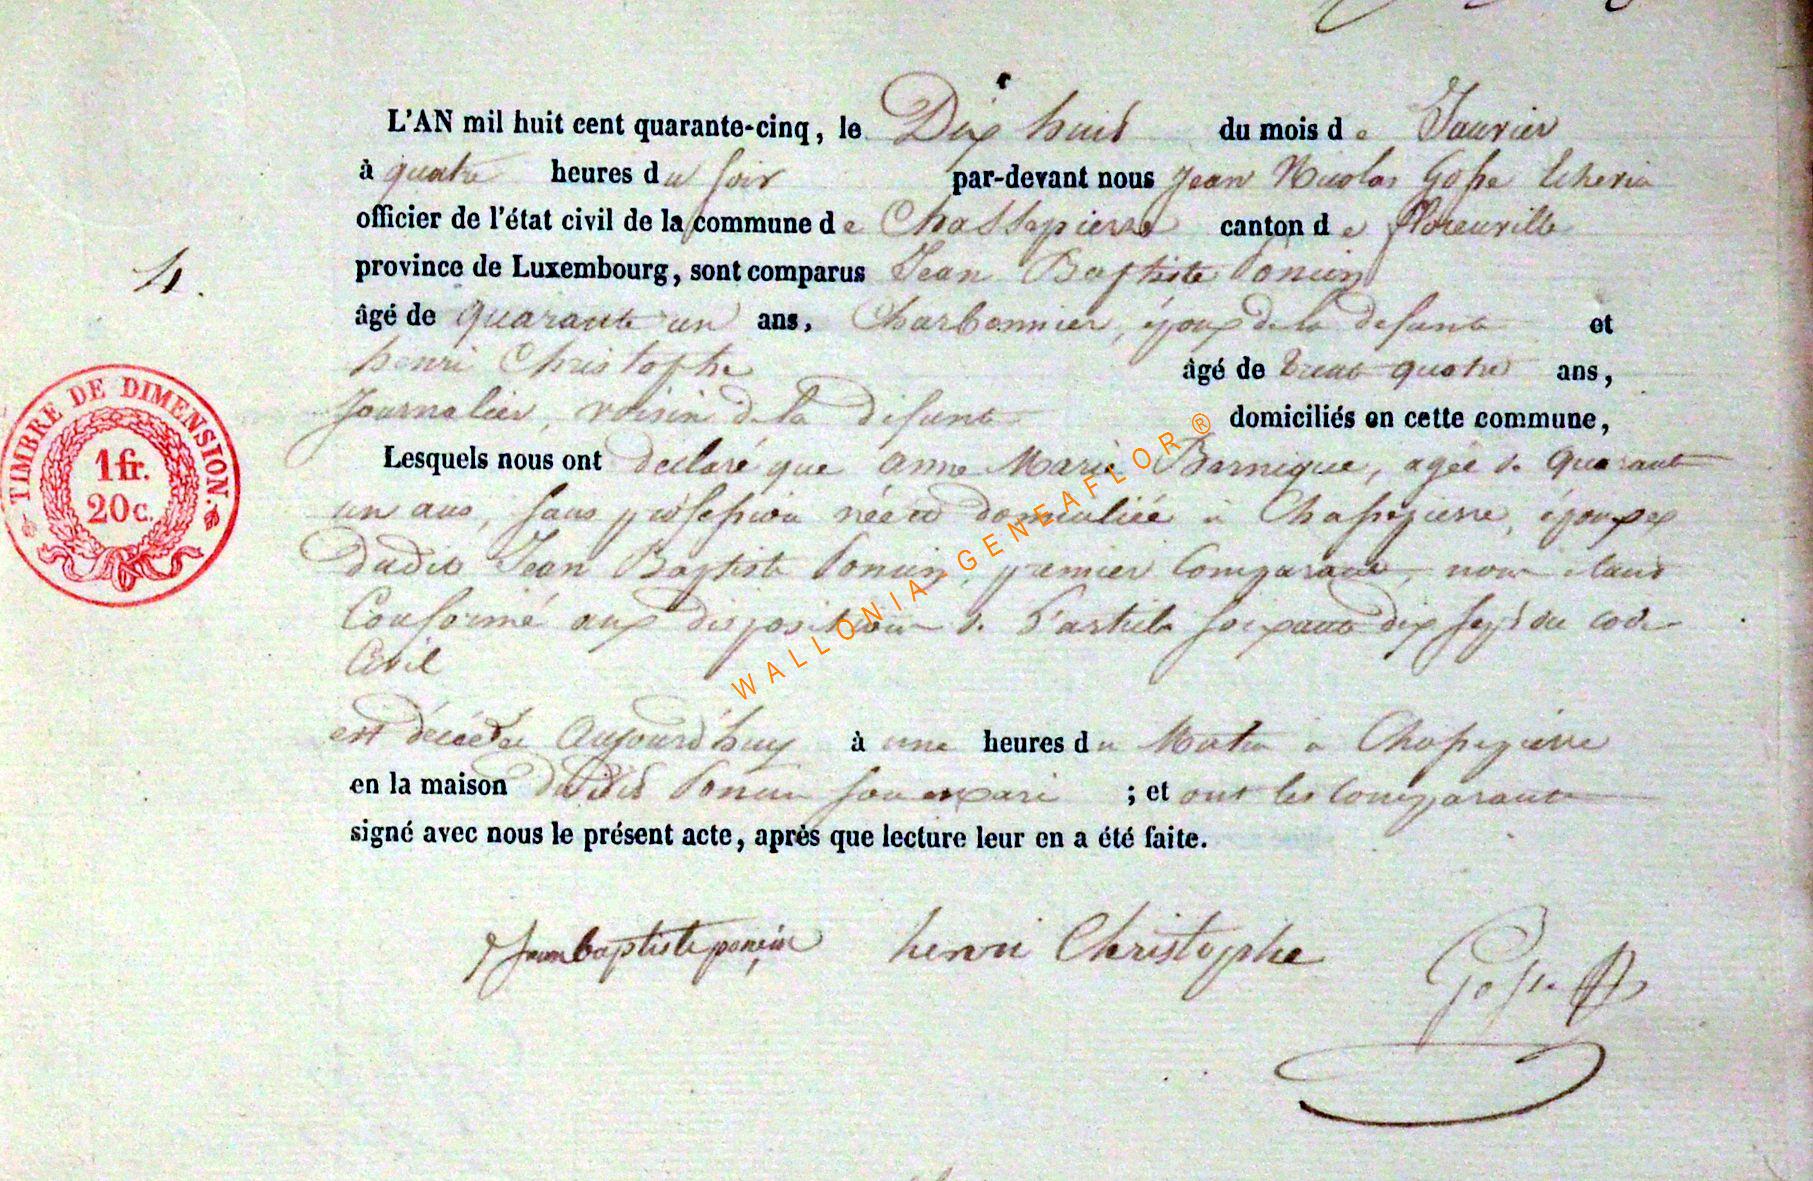 L'AN mil huit cent quarante-cinq, le Dix huit du mois de Janvier
à quatre heures du soir par-devant nous Jean Nicolas Gosse Echevin
officier de l'état civil de la commune de Chassepierre canton de Florenville
province de Luxembourg, sont comparus Jean Baptiste Poncin
âgé de quarante un ans, Charbonnier, époux de la defunte et
henri Christophe âgé de trent quatre ans,
Journalier, voisin de la défunte domiciliés en cette commune,
Lesquels nous ont declaré que anne Marie Bernique, agée de quarante
un ans, sans profession née et domiciliée à Chassepierre, épouse
dudit Jean Baptiste Poncin, premier Comparant, nous étant
Conformé aux dispositions de l'article soixante dix sept du code
Civil
est décédée aujourd'huy à une heures du Matin à Chassepierre
en la maison dudit Poncin son mari ; et ont les Comparants
signé avec nous le présent acte, après que lecture leur en a été faite.
Jean baptiste poncin henri Christophe Gosse
4.
TIMBRE DE DIMENSION.
1 fr.
20 c.
WALLONIA-GENEAFLOR®